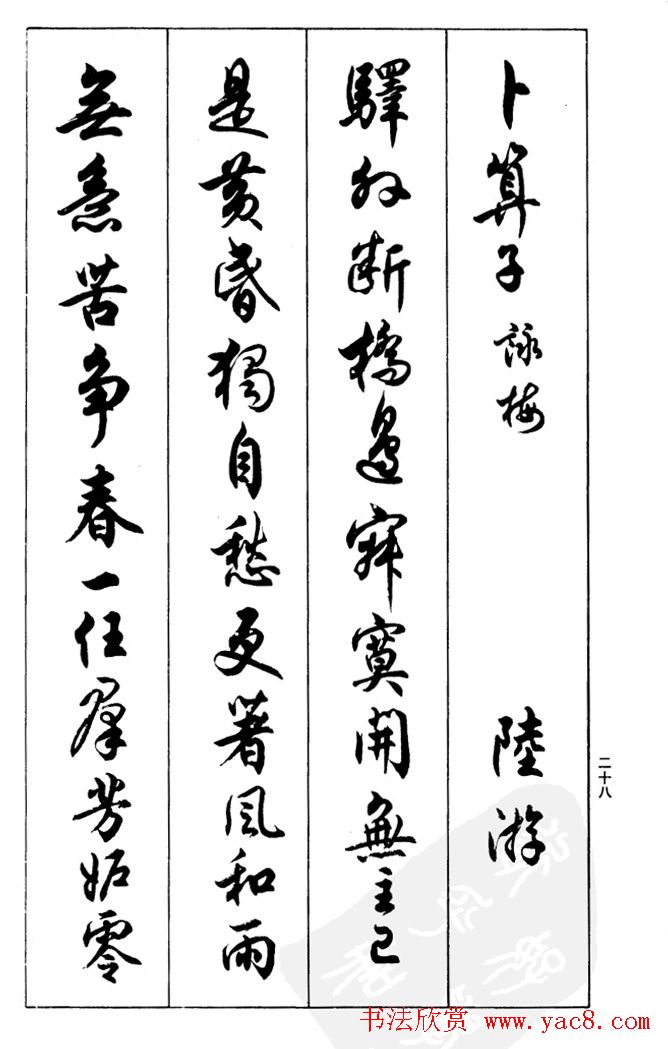 卜算子 詠梅 陸游
驛外斷橋邊寂寞開無主已
是黃昏獨自愁更著風和雨
無意苦爭春一任羣芳妒零
二十八
书法欣赏 www.yac8.com